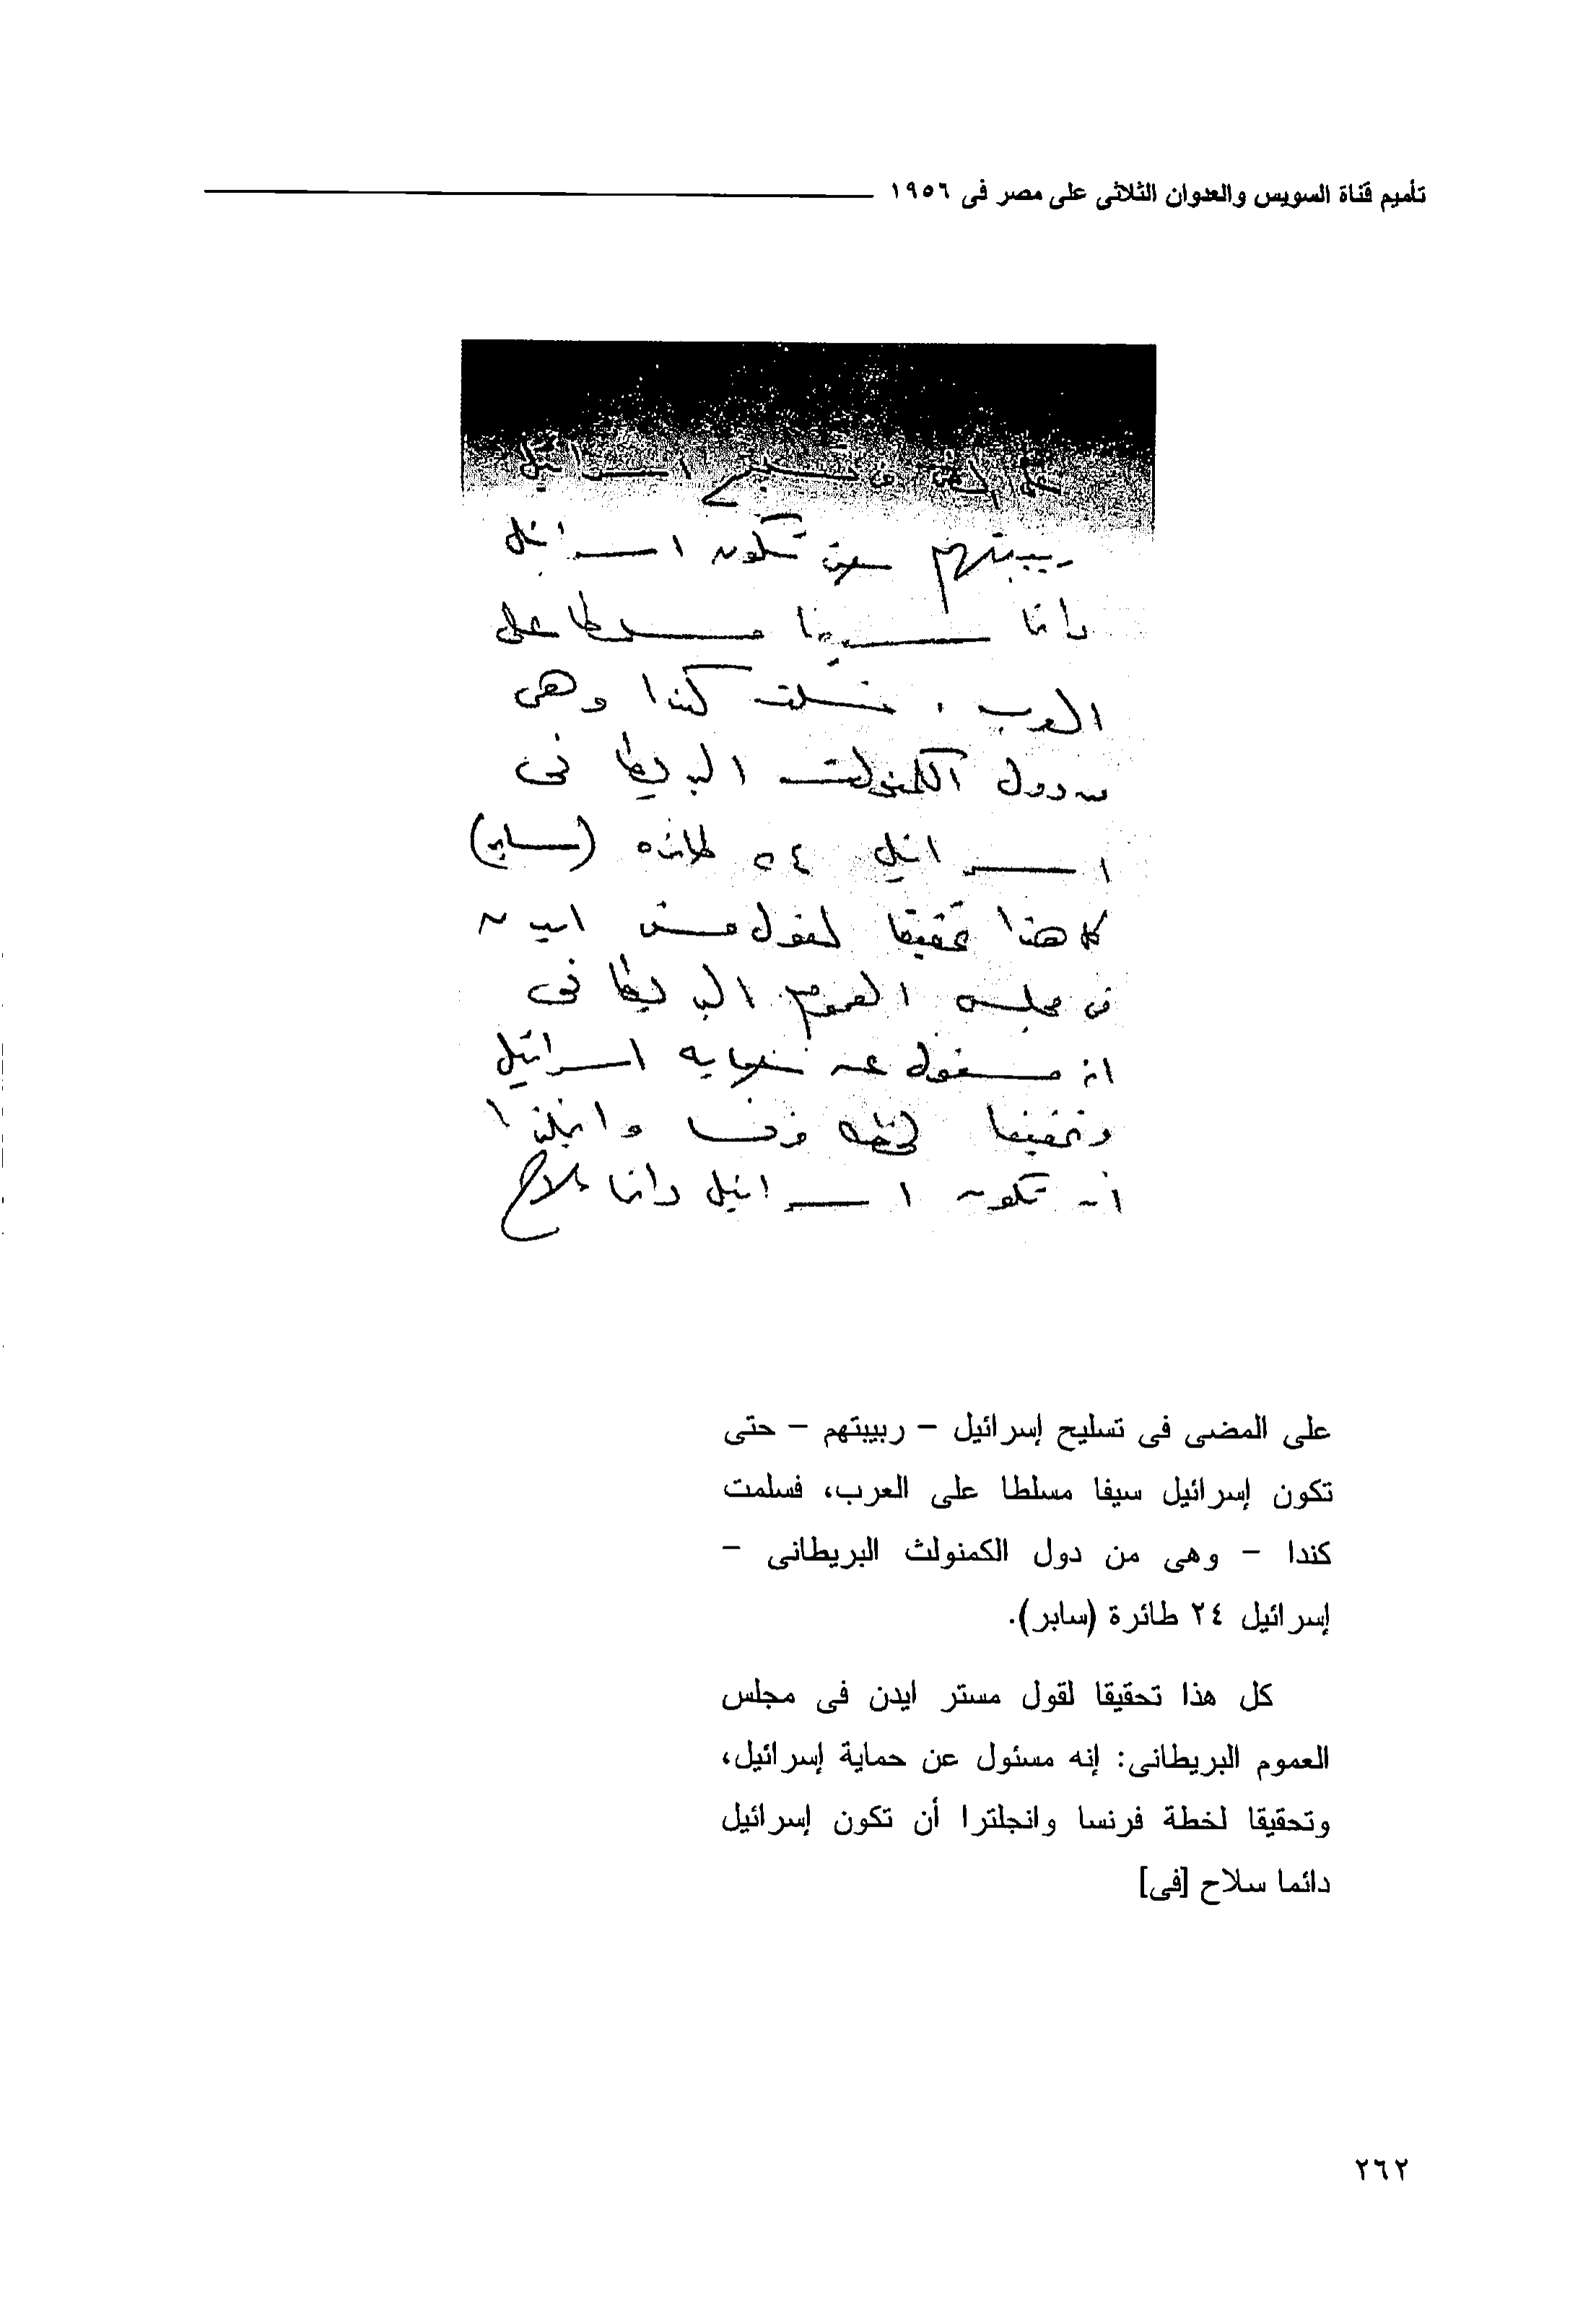 تأميم قناة السويس والعدوان الثلاثى على مصر فى ١٩٥٦
على المضى فى تسليح اسرائيل
ربيبتهم حتى تكون اسرائيل
دائما سيفا مسلطا على
العرب . فسلمت كندا وهى
من دول الكمنولث البريطانى
اسرائيل ٢٤ طائره (سابر)
كل هذا تحقيقا لقول مستر ايدن
فى مجلس العموم البريطانى
انه مسئول عن حمايه اسرائيل
وتحقيقا لخطه فرنسا وانجلترا
ان تكون اسرائيل دائما سلاح
على المضى فى تسليح إسرائيل – ربيبتهم – حتى
تكون إسرائيل سيفا مسلطا على العرب، فسلمت
كندا – وهى من دول الكمنولث البريطانى –
إسرائيل ٢٤ طائرة (سابر).
كل هذا تحقيقا لقول مستر ايدن فى مجلس
العموم البريطانى: إنه مسئول عن حماية إسرائيل،
وتحقيقا لخطة فرنسا وانجلترا أن تكون إسرائيل
دائما سلاح [فى]
٢٦٢